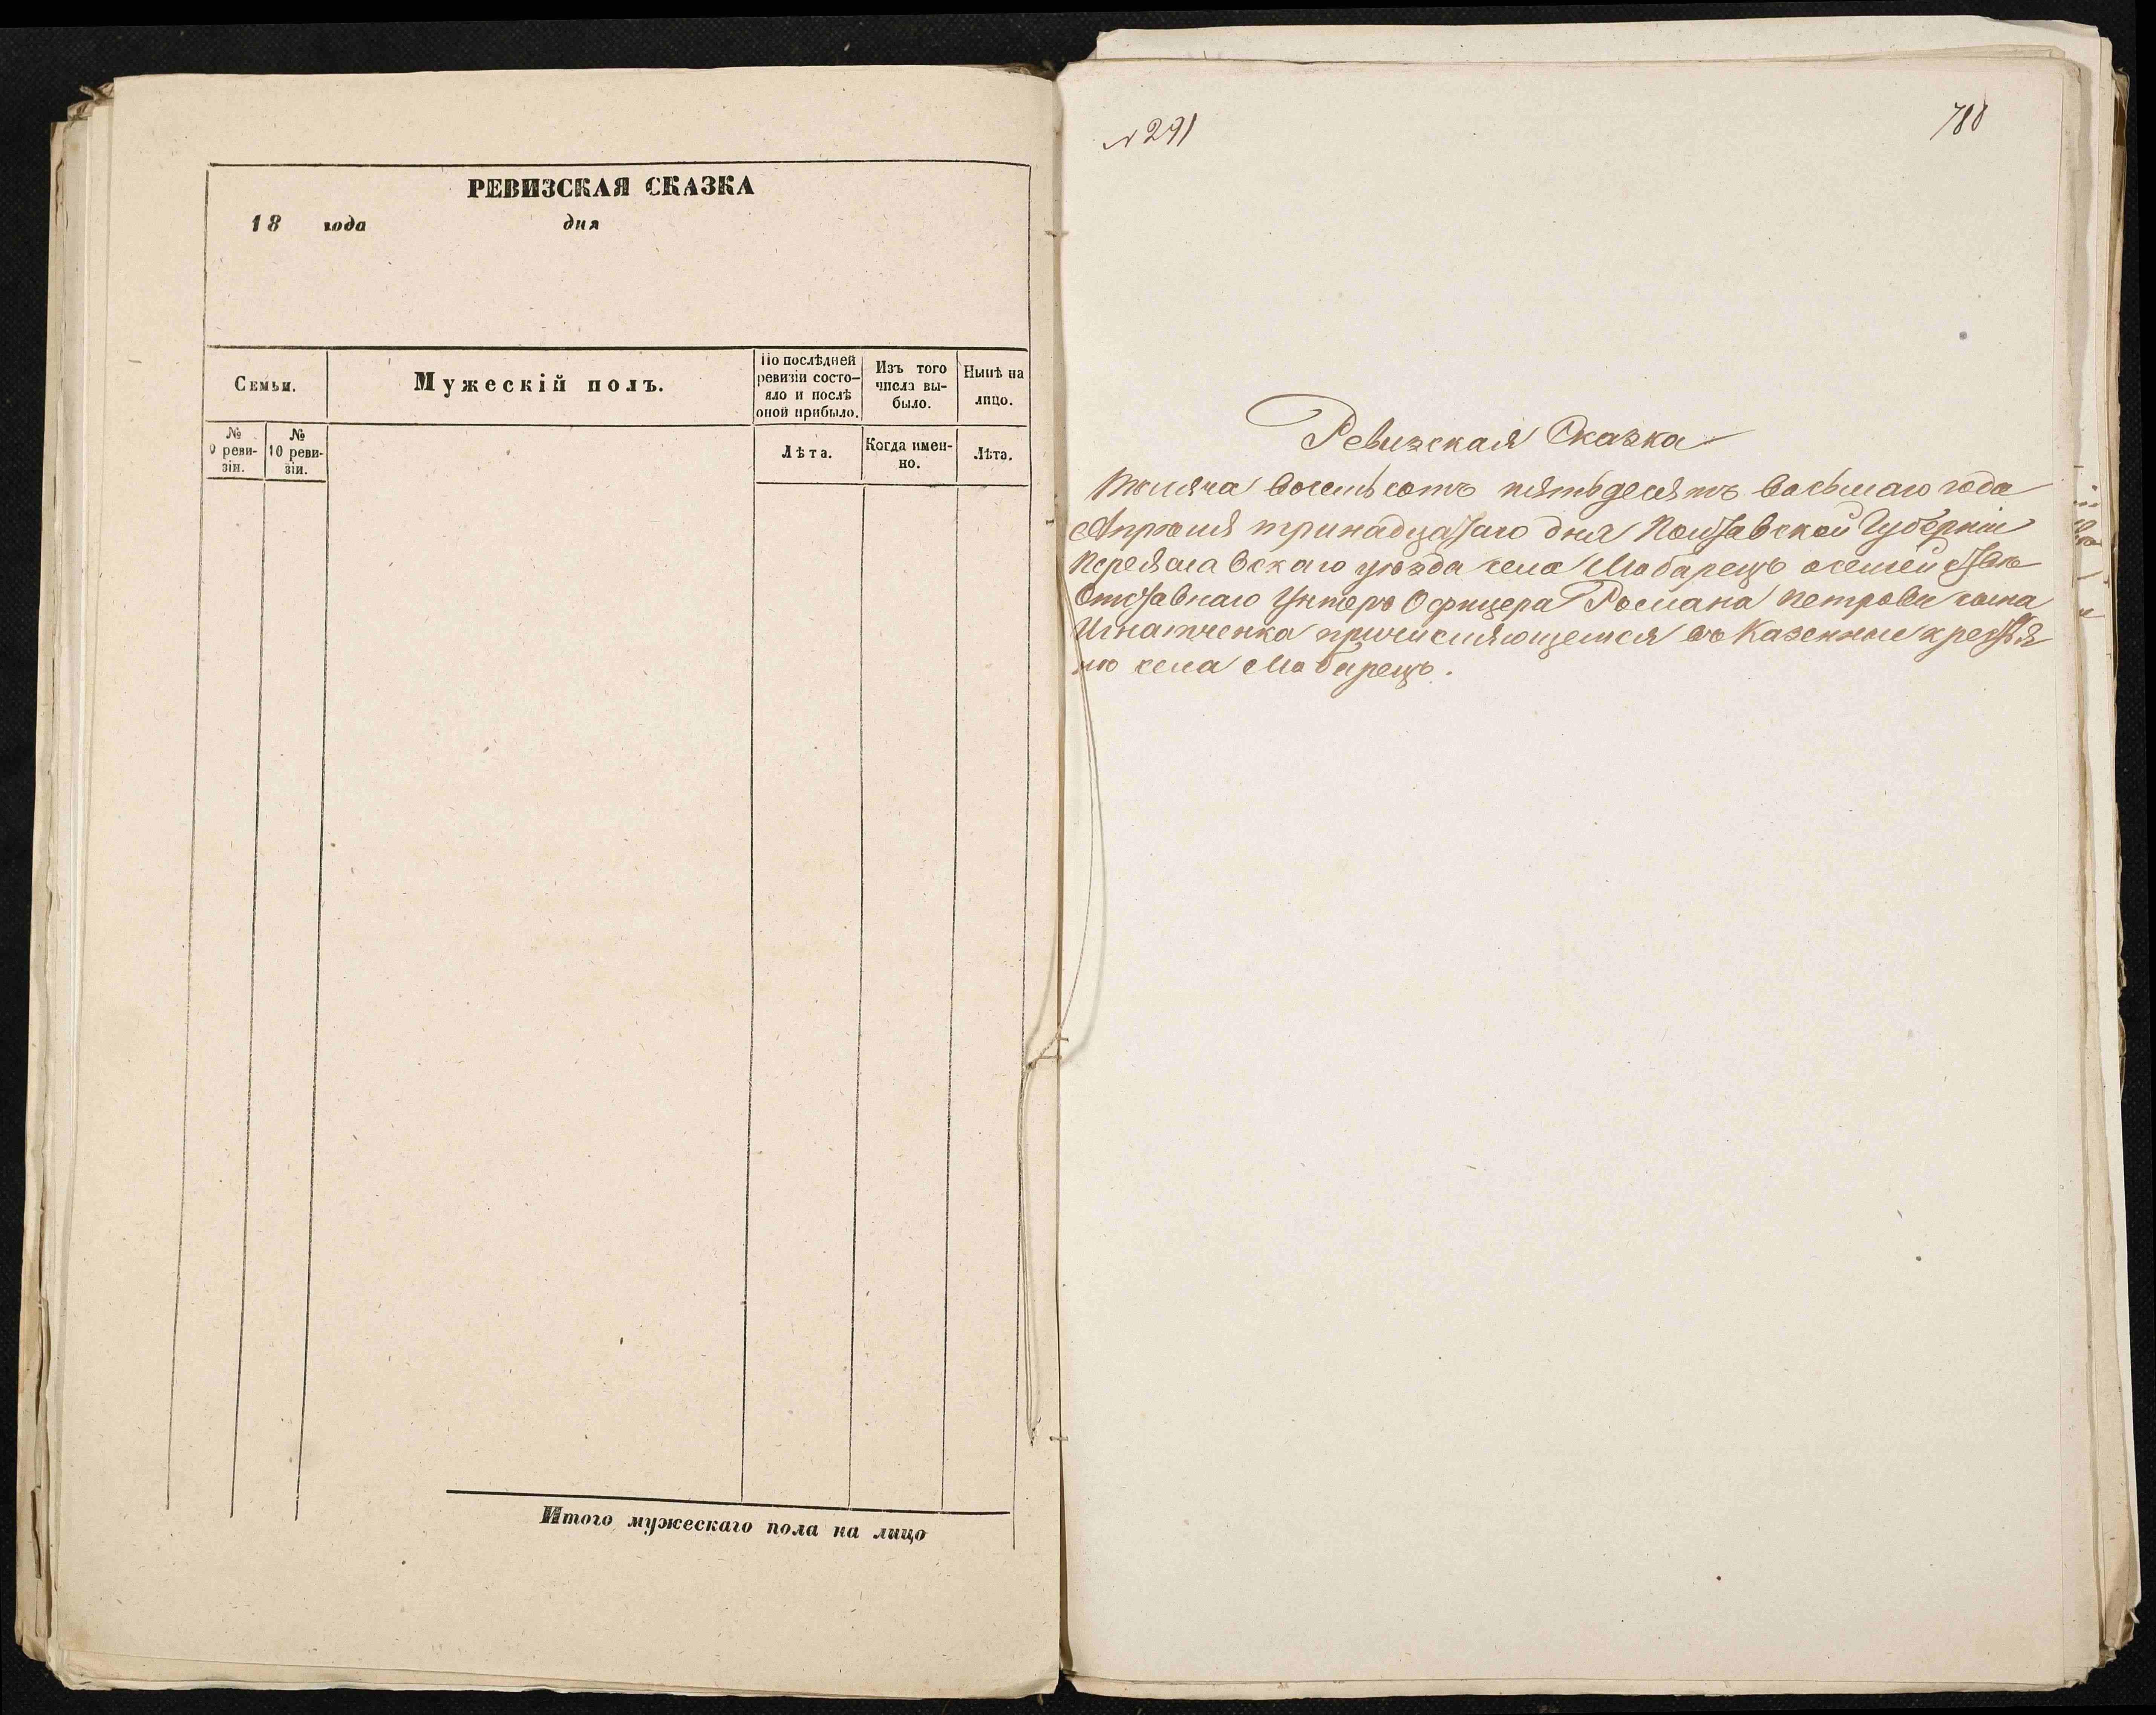 РЕВИЗСКАЯ СКАЗКА
18 года дня
Семьи.
Мужескій полъ.
По послѣдней
ревизіи состо-
яло и послѣ
оной прибыло.
Изъ того
числа вы-
было.
Нынѣ на
лицо.
№
9 реви-
зіи.
№
10 реви-
зіи.
Лѣта.
Когда имен-
но.
Лѣта.
Итого мужескаго пола на лицо
№ 291
788
Ревизская Сказка
Тысяча восемьсотъ пятьдесятъ восьмаго года
Апрѣля тринадцатаго дня Полтавской Губерніи
Переяславскаго уѣзда села Мабарецъ осемействѣ
Отставнаго Унтеръ Офицера Романа Петрова сына
Игнатченка причисляющемся въ Казенные крестья
не села Мабарецъ.